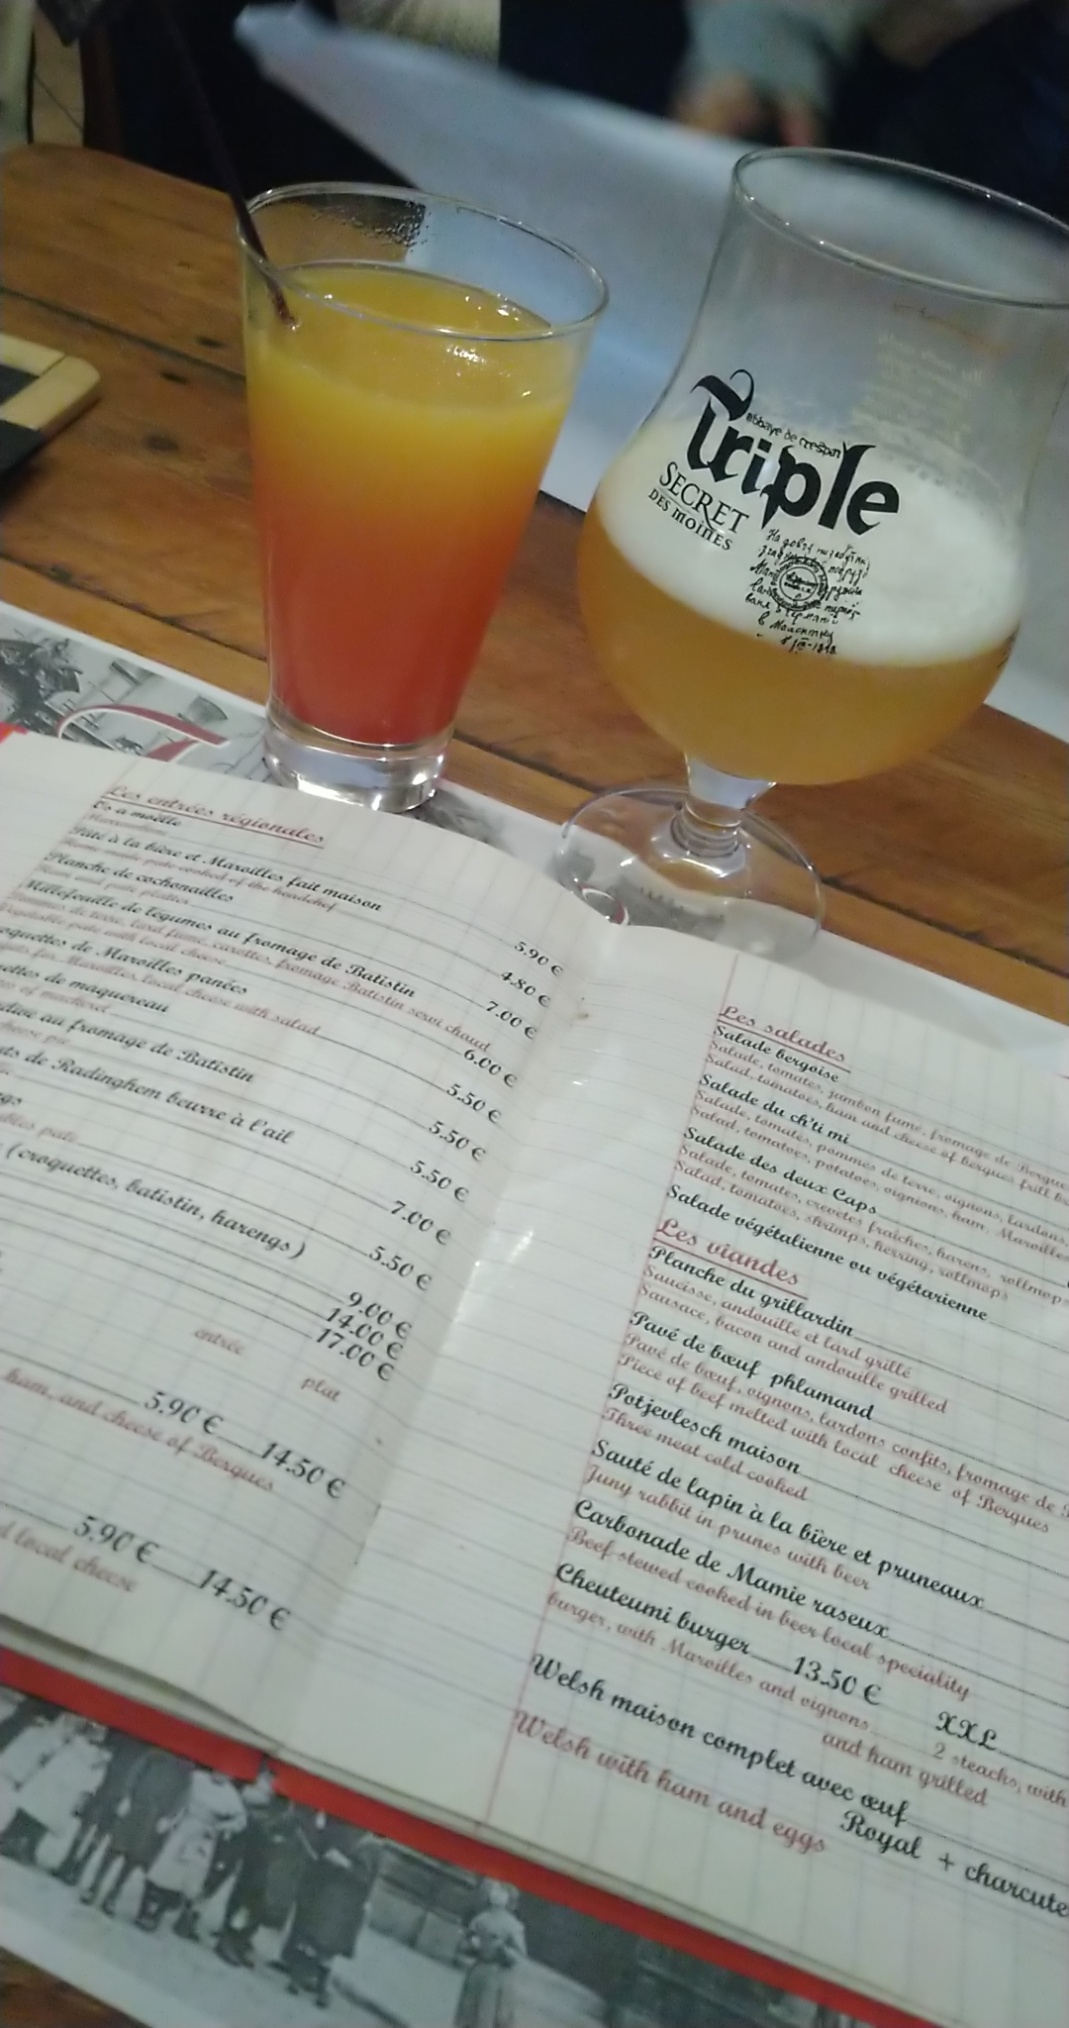 abbaye de crespin
Triple
SECRET
DES MOINES
Les entrées régionales
Os a moëlle
5.90 €
Pâté à la bière et Maroilles fait maison
4.80 €
Home made pate cooked of the headchef
Planche de cochonailles
7.00 €
Ham and pate platter
Millefeuille de légumes au fromage de Batistin
6.00 €
Pommes de terre, lard fumé, carottes, fromage Batistin servi chaud
Vegetable pate with local cheese
oquettes de Maroilles panées
5.50 €
Maroilles, local cheese with salad
ettes de maquereau
5.50 €
of mackerel
au fromage de Batistin
5.50 €
cheese pie
ts de Radinghem beurre à l'ail
7.00 €
ngs
5.50 €
ables pate
(croquettes, batistin, harengs)
9.00 €
14.00 €
17.00 €
entrée plat
5.90 € 14.50 €
ham, and cheese of Bergues
5.90 € 14.50 €
d local cheese
Les salades
Salade bergoise
Salade, tomates, jambon fumé, fromage de Bergue
Salad, tomatoes, ham and cheese of bergues
Salade du ch'ti mi
Salade, tomates, pommes de terre, oignons, lardons,
Salad, tomatoes, potatoes, oignons, ham, Maroilles
Salade des deux Caps
Salade, tomates, crevettes fraîches, harens, rollmop
Salad, tomatoes, shrimps, herring, rollmops
Salade végétalienne ou végétarienne
Les viandes
Planche du grillardin
Saucisse, andouille et lard grillé
Sausace, bacon and andouille grilled
Pavé de bœuf phlamand
Pavé de bœuf, oignons, lardons confits, fromage de
Piece of beef melted with local cheese of Bergues
Potjevlesch maison
Three meat cold cooked
Sauté de lapin à la bière et pruneaux
Juny rabbit in prunes with beer
Carbonade de Mamie raseux
Beef stewed cooked in beer local speciality
Cheuteumi burger 13.50 € XXL
burger, with Maroilles and oignons 2 steacks, with
and ham grilled
Welsh maison complet avec œuf
Welsh with ham and eggs Royal + charcute